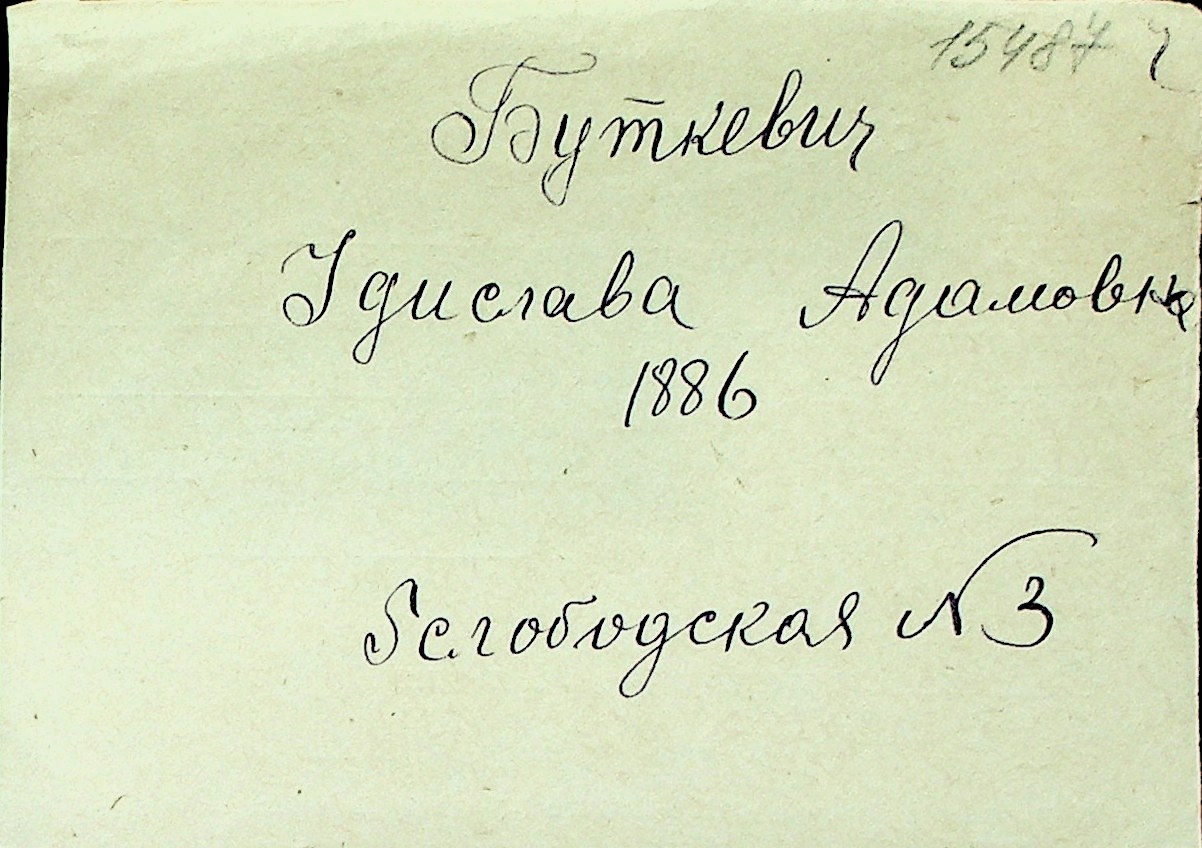 15487
Буткевич
Удислава Адамовна
1886
Белободская № 3